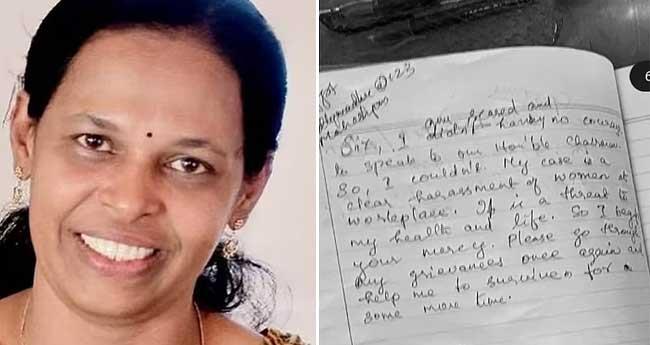 6
Sir, I am scared and
having no courage
to speak to our Hon'ble Chairman.
So, I couldn't. My case is a
clear harassment of women at
workplace. It is a threat to
my health and life. So I beg
your mercy. Please go through
my grievances once again and
help me to for a
some more time.